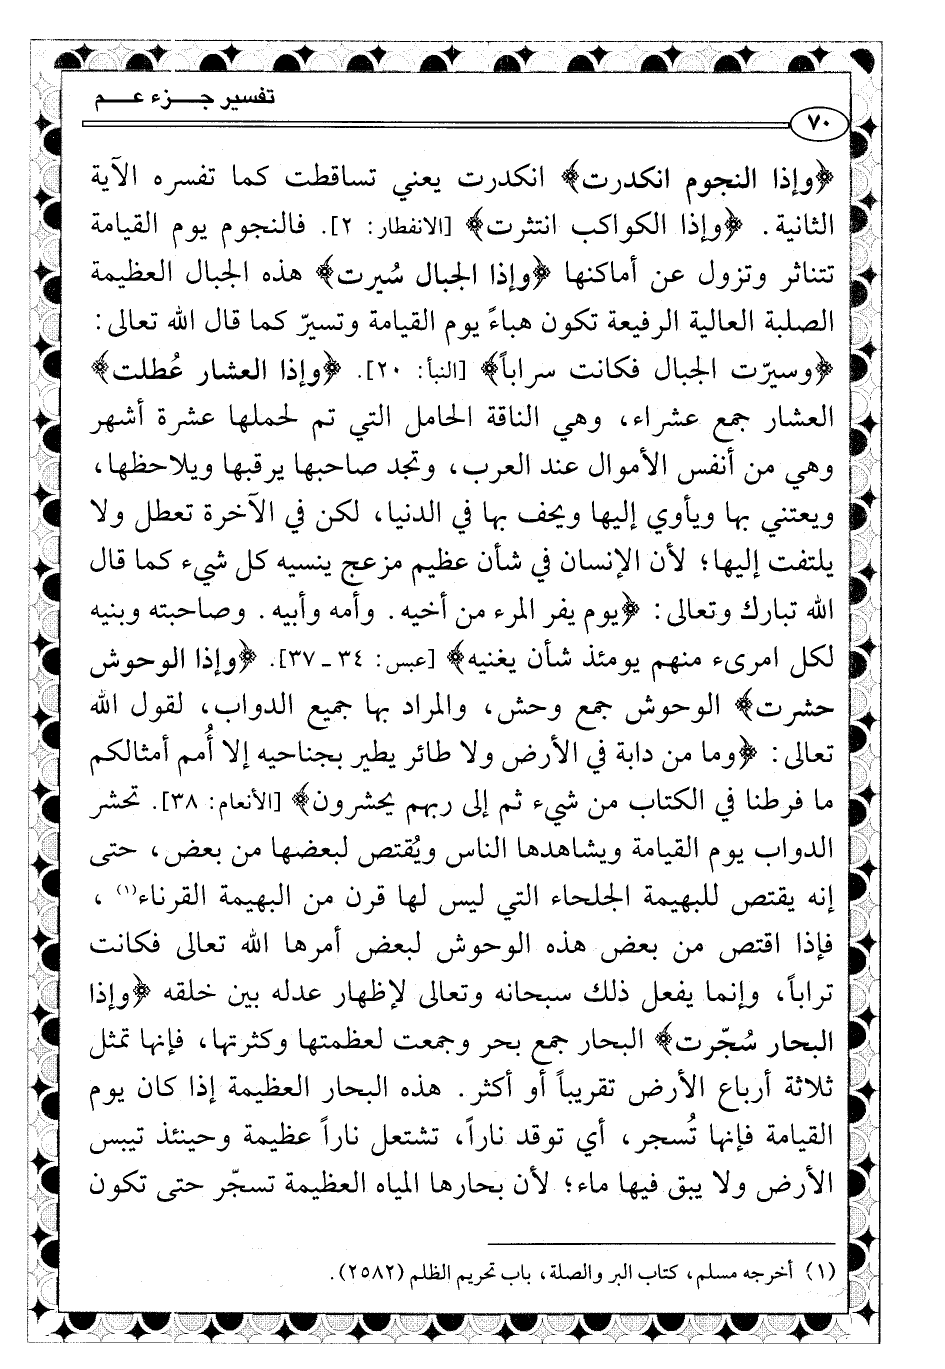 تفسير جـــزء عـــم
٧٠
﴿وإذا النجوم انكدرت﴾ انكدرت يعني تساقطت كما تفسره الآية
الثانية. ﴿وإذا الكواكب انتثرت﴾ [الانفطار: ٢]. فالنجوم يوم القيامة
تتناثر وتزول عن أماكنها ﴿وإذا الجبال سُيرت﴾ هذه الجبال العظيمة
الصلبة العالية الرفيعة تكون هباءً يوم القيامة وتسيرّ كما قال الله تعالى:
﴿وسيرّت الجبال فكانت سراباً﴾ [النبأ: ٢٠]. ﴿وإذا العشار عُطلت﴾
العشار جمع عشراء، وهي الناقة الحامل التي تم لحملها عشرة أشهر
وهي من أنفس الأموال عند العرب، وتجد صاحبها يرقبها ويلاحظها،
ويعتني بها ويأوي إليها ويحف بها في الدنيا، لكن في الآخرة تعطل ولا
يلتفت إليها؛ لأن الإنسان في شأن عظيم مزعج ينسيه كل شيء كما قال
الله تبارك وتعالى: ﴿يوم يفر المرء من أخيه. وأمه وأبيه. وصاحبته وبنيه
لكل امرىء منهم يومئذ شأن يغنيه﴾ [عبس: ٣٤ ـ ٣٧]. ﴿وإذا الوحوش
حشرت﴾ الوحوش جمع وحش، والمراد بها جميع الدواب، لقول الله
تعالى: ﴿وما من دابة في الأرض ولا طائر يطير بجناحيه إلا أُمم أمثالكم
ما فرطنا في الكتاب من شيء ثم إلى ربهم يحشرون﴾ [الأنعام: ٣٨]. تحشر
الدواب يوم القيامة ويشاهدها الناس ويُقتص لبعضها من بعض، حتى
إنه يقتص للبهيمة الجلحاء التي ليس لها قرن من البهيمة القرناء(١)،
فإذا اقتص من بعض هذه الوحوش لبعض أمرها الله تعالى فكانت
تراباً، وإنما يفعل ذلك سبحانه وتعالى لإظهار عدله بين خلقه ﴿وإذا
البحار سُجّرت﴾ البحار جمع بحر وجمعت لعظمتها وكثرتها، فإنها تمثل
ثلاثة أرباع الأرض تقريباً أو أكثر. هذه البحار العظيمة إذا كان يوم
القيامة فإنها تُسجر، أي توقد ناراً، تشتعل ناراً عظيمة وحينئذ تيبس
الأرض ولا يبق فيها ماء؛ لأن بحارها المياه العظيمة تسجّر حتى تكون
(١) أخرجه مسلم، كتاب البر والصلة، باب تحريم الظلم (٢٥٨٢).